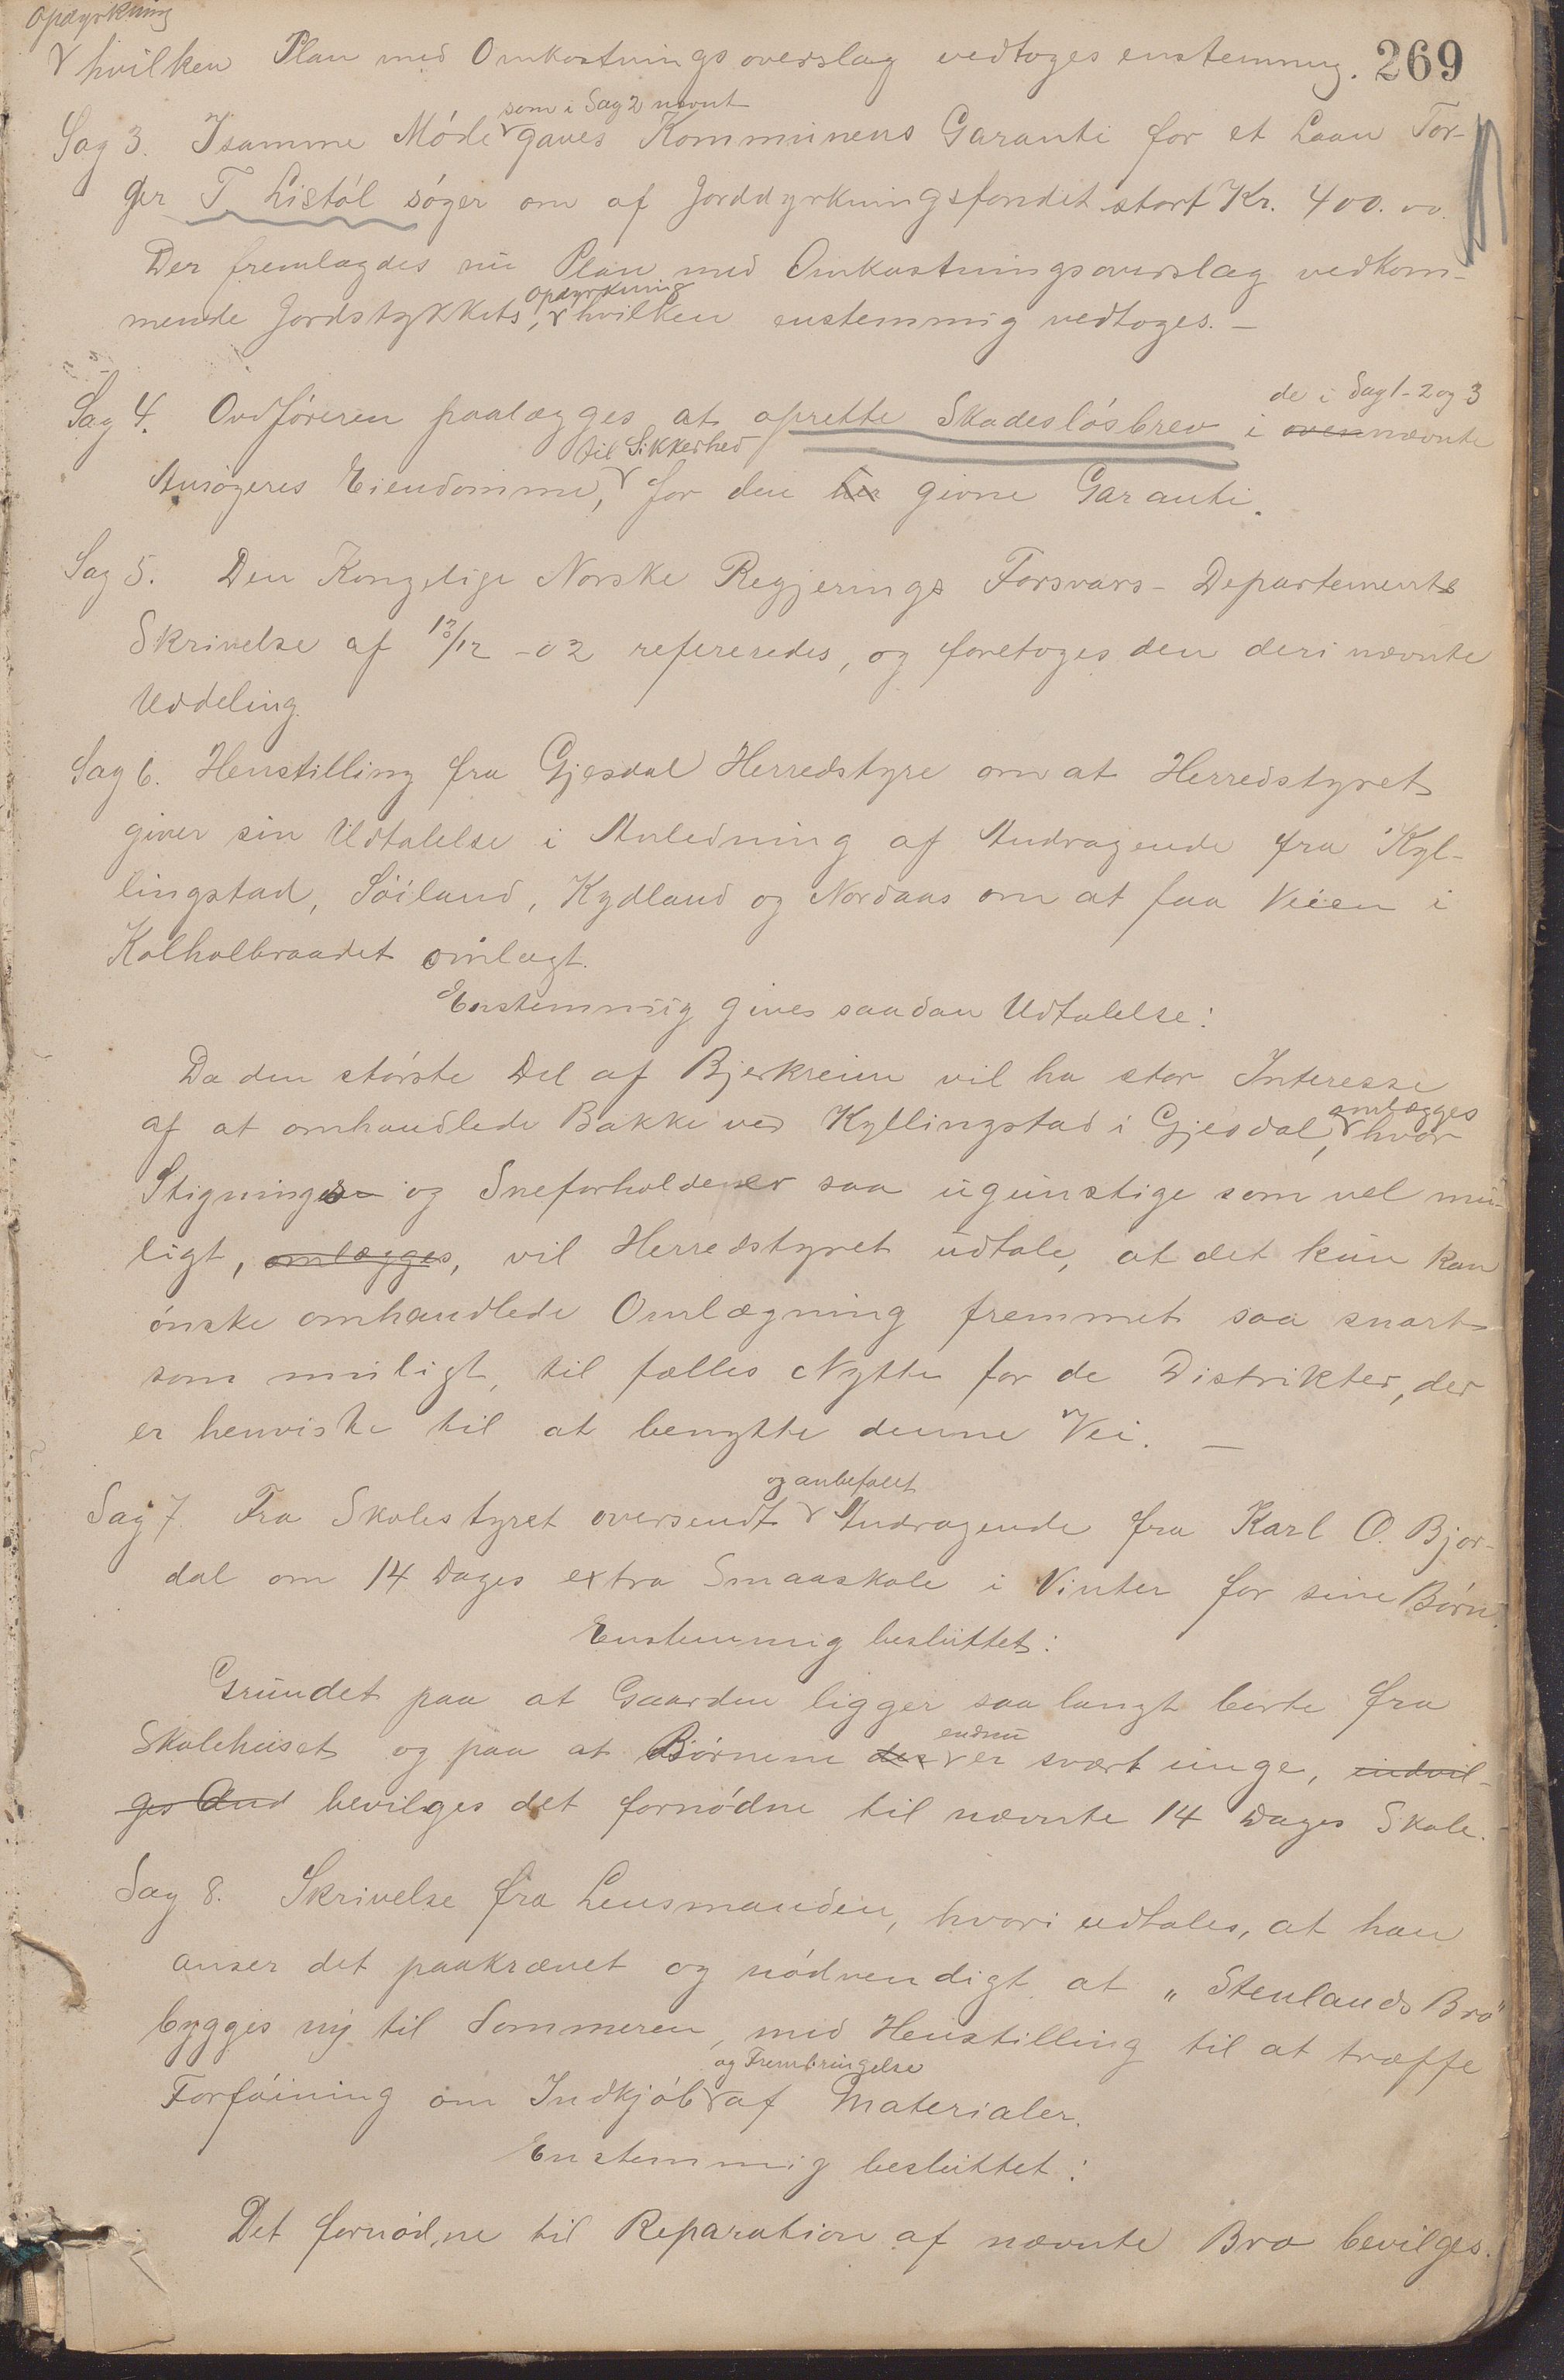 Opdyrkning
hvilken Plan med Omkostningsoverslag vedtoges enstemmig. 269
som i Sag 2 nævnt
Sag 3. Isamme Møde gaves Kommunens Garanti for et Laan Tor-
ger T. Listøl søger om af Jorddyrkningsfondet stort Kr. 400.00.
Der fremlagdes nu Plan med Omkostningsoverslag vedkom-
opdyrkning
mende Jordstykkets, hvilken enstemmig vedtoges. —
de i Sag 1-2 og 3
Sag 4. Ordføreren paalægges at oprette Skadesløsbrev i ovennævnte
til Sikkerhed
Ansøgeres Eiendomme, for den her givne Garanti.
Sag 5. Den Kongelige Norske Regjerings Forsvars-Departements
Skrivelse af /12 -02 refereredes, og foretoges den deri nævnte
Uddeling.
Sag 6. Henstilling fra Gjesdal Herredstyre om at Herredstyret
giver sin Udtalelse i Anledning af Andragende fra Kyl-
lingstad, Søiland, Kydland og Nordaas om at faa Veien i
Kolholbraadet omlagt.
Enstemmig gives saadan Udtalelse:
Da den største Del af Bjerkreim vil ha stor Interesse
omlægges
af at omhandlede Bakke ved Kyllingstad i Gjesdal, hvor
Stigningen og Sneforholdene er saa ugunstige som vel mu-
ligt, omlægges, vil Herredstyret udtale, at det kun kan
ønske omhandlede Omlægning fremmet saa snart
som muligt, til fælles Nytte for de Distrikter, der
er henviste til at benytte denne Vei. —
og anbefalet
Sag 7. Fra Skolestyret oversendt Andragende fra Karl O. Bjor-
dal om 14 Dages extra Smaaskole i Vinter for sine Børn.
Enstemmig besluttet:
Grundet paa at Gaarden ligger saa langt borte fra
endnu
Skolehuset og paa at Børnene der er svært unge, indvil-
ges And bevilges det fornødne til nævnte 14 Dages Skole.
Sag 8. Skrivelse fra Lensmanden, hvori udtales, at han
anser det paakrævet og nødvendigt at „Stenlands Bro"
bygges ny til Sommeren, med Henstilling til at træffe
og Frembringelse
Forføining om Indkjøb af Materialer.
Enstemmig besluttet:
Det fornødne til Reparation af nævnte Bro bevilges.